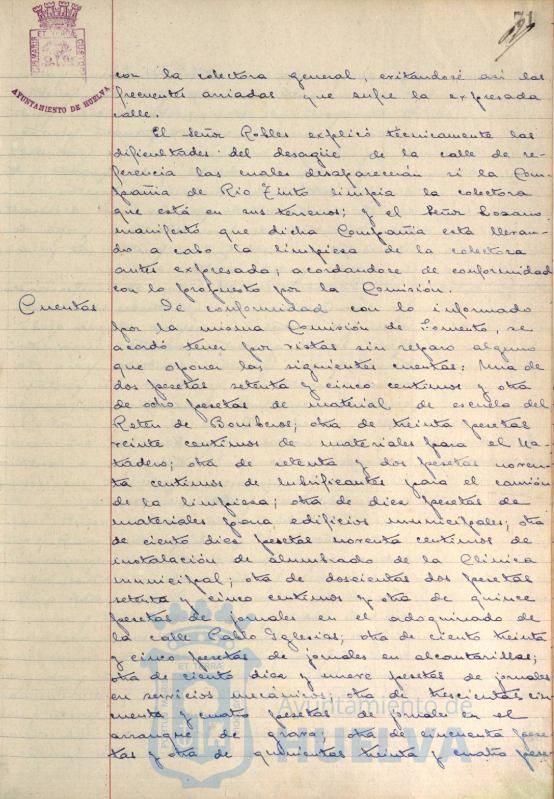 71
AYUNTAMIENTO DE HUELVA
con la colectora general, evitandose asi las
frecuentes arriadas que sufre la expresada
calle.
El Señor Robles explicó técnicamente las
dificultades del desagüe de la calle de re-
ferencia las cuales desaparecerán si la Com-
pañia de Rio Tinto limpia la colectora
que está en sus terrenos; y el Señor Lozano
manifestó que dicha Compañia esta llevan-
do a cabo la limpieza de la colectora
antes expresada; acordandose de conformidad
con lo propuesto por la Comisión.
Cuentas
De conformidad con lo informado
por la misma Comisión de Fomento, se
acordó tener por vistas sin reparo alguno
que oponer las siguientes cuentas: Una de
dos pesetas setenta y cinco centimos y otra
de ocho pesetas de material de escuela del
Reten de Bomberos; otra de treinta pesetas
veinte centimos de materiales para el Ma-
tadero; otra de setenta y dos pesetas noven-
ta centimos de lubrificantes para el camión
de la limpieza; otra de diez pesetas de
materiales para edificios municipales; otra
de ciento diez pesetas noventa centimos de
instalación de alumbrado de la Clinica
municipal; otra de doscientas dos pesetas
setenta y cinco centimos y otra de quince
pesetas de jornales en el adoquinado de
la calle Pablo Iglesias; otra de ciento treinta
y cinco pesetas de jornales en alcantarillas;
otra de ciento diez y nueve pesetas de jornales
en servicios mecánicos; otra de trescientas cin-
cuenta y cuatro pesetas de jornales en el
arranque de grava; otra de cincuenta pese-
tas y otra de quinientas treinta y cuatro pese-
Ayuntamiento de
HUELVA